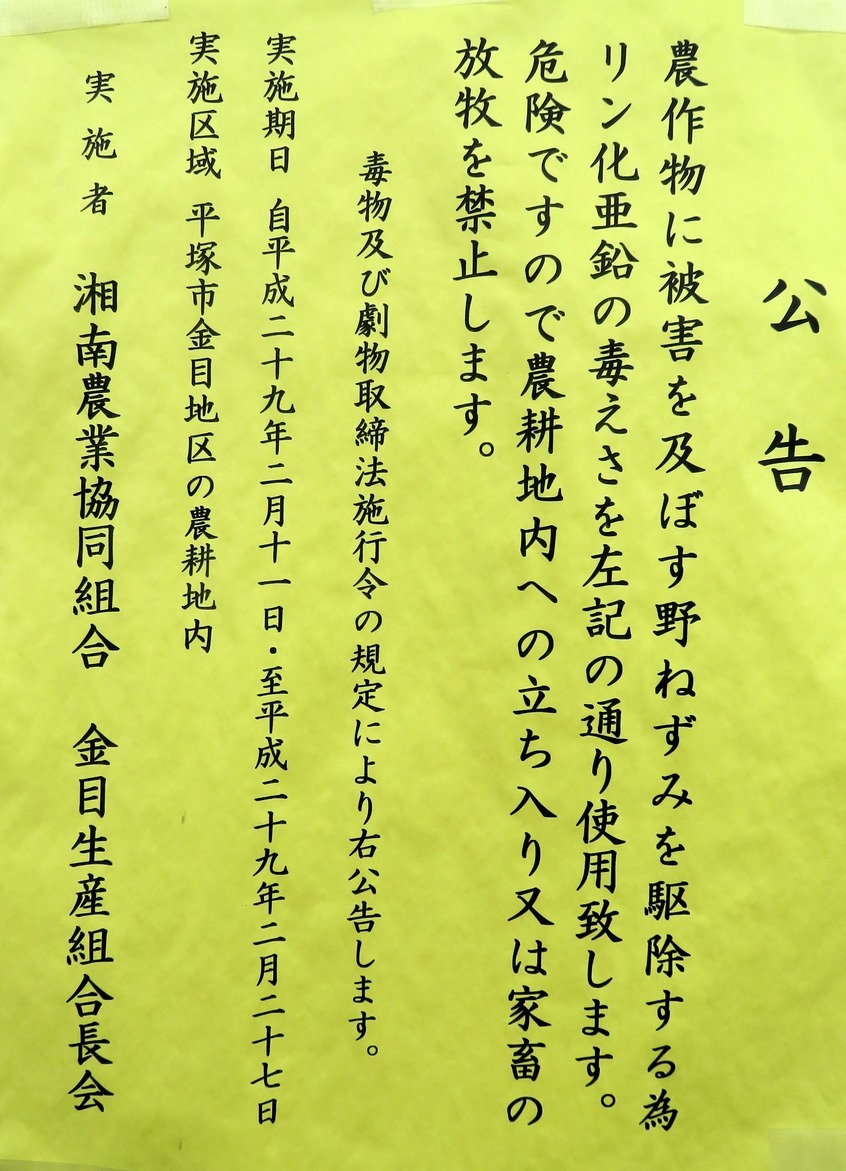 公告
農作物に被害を及ぼす野ねずみを駆除する為
リン化亜鉛の毒えさを左記の通り使用致します。
危険ですので農耕地内への立ち入り又は家畜の
放牧を禁止します。
毒物及び劇物取締法施行令の規定により右公告します。
実施期日 自平成二十九年二月十一日・至平成二十九年二月二十七日
実施区域 平塚市金目地区の農耕地内
実施者 湘南農業協同組合 金目生産組合長会